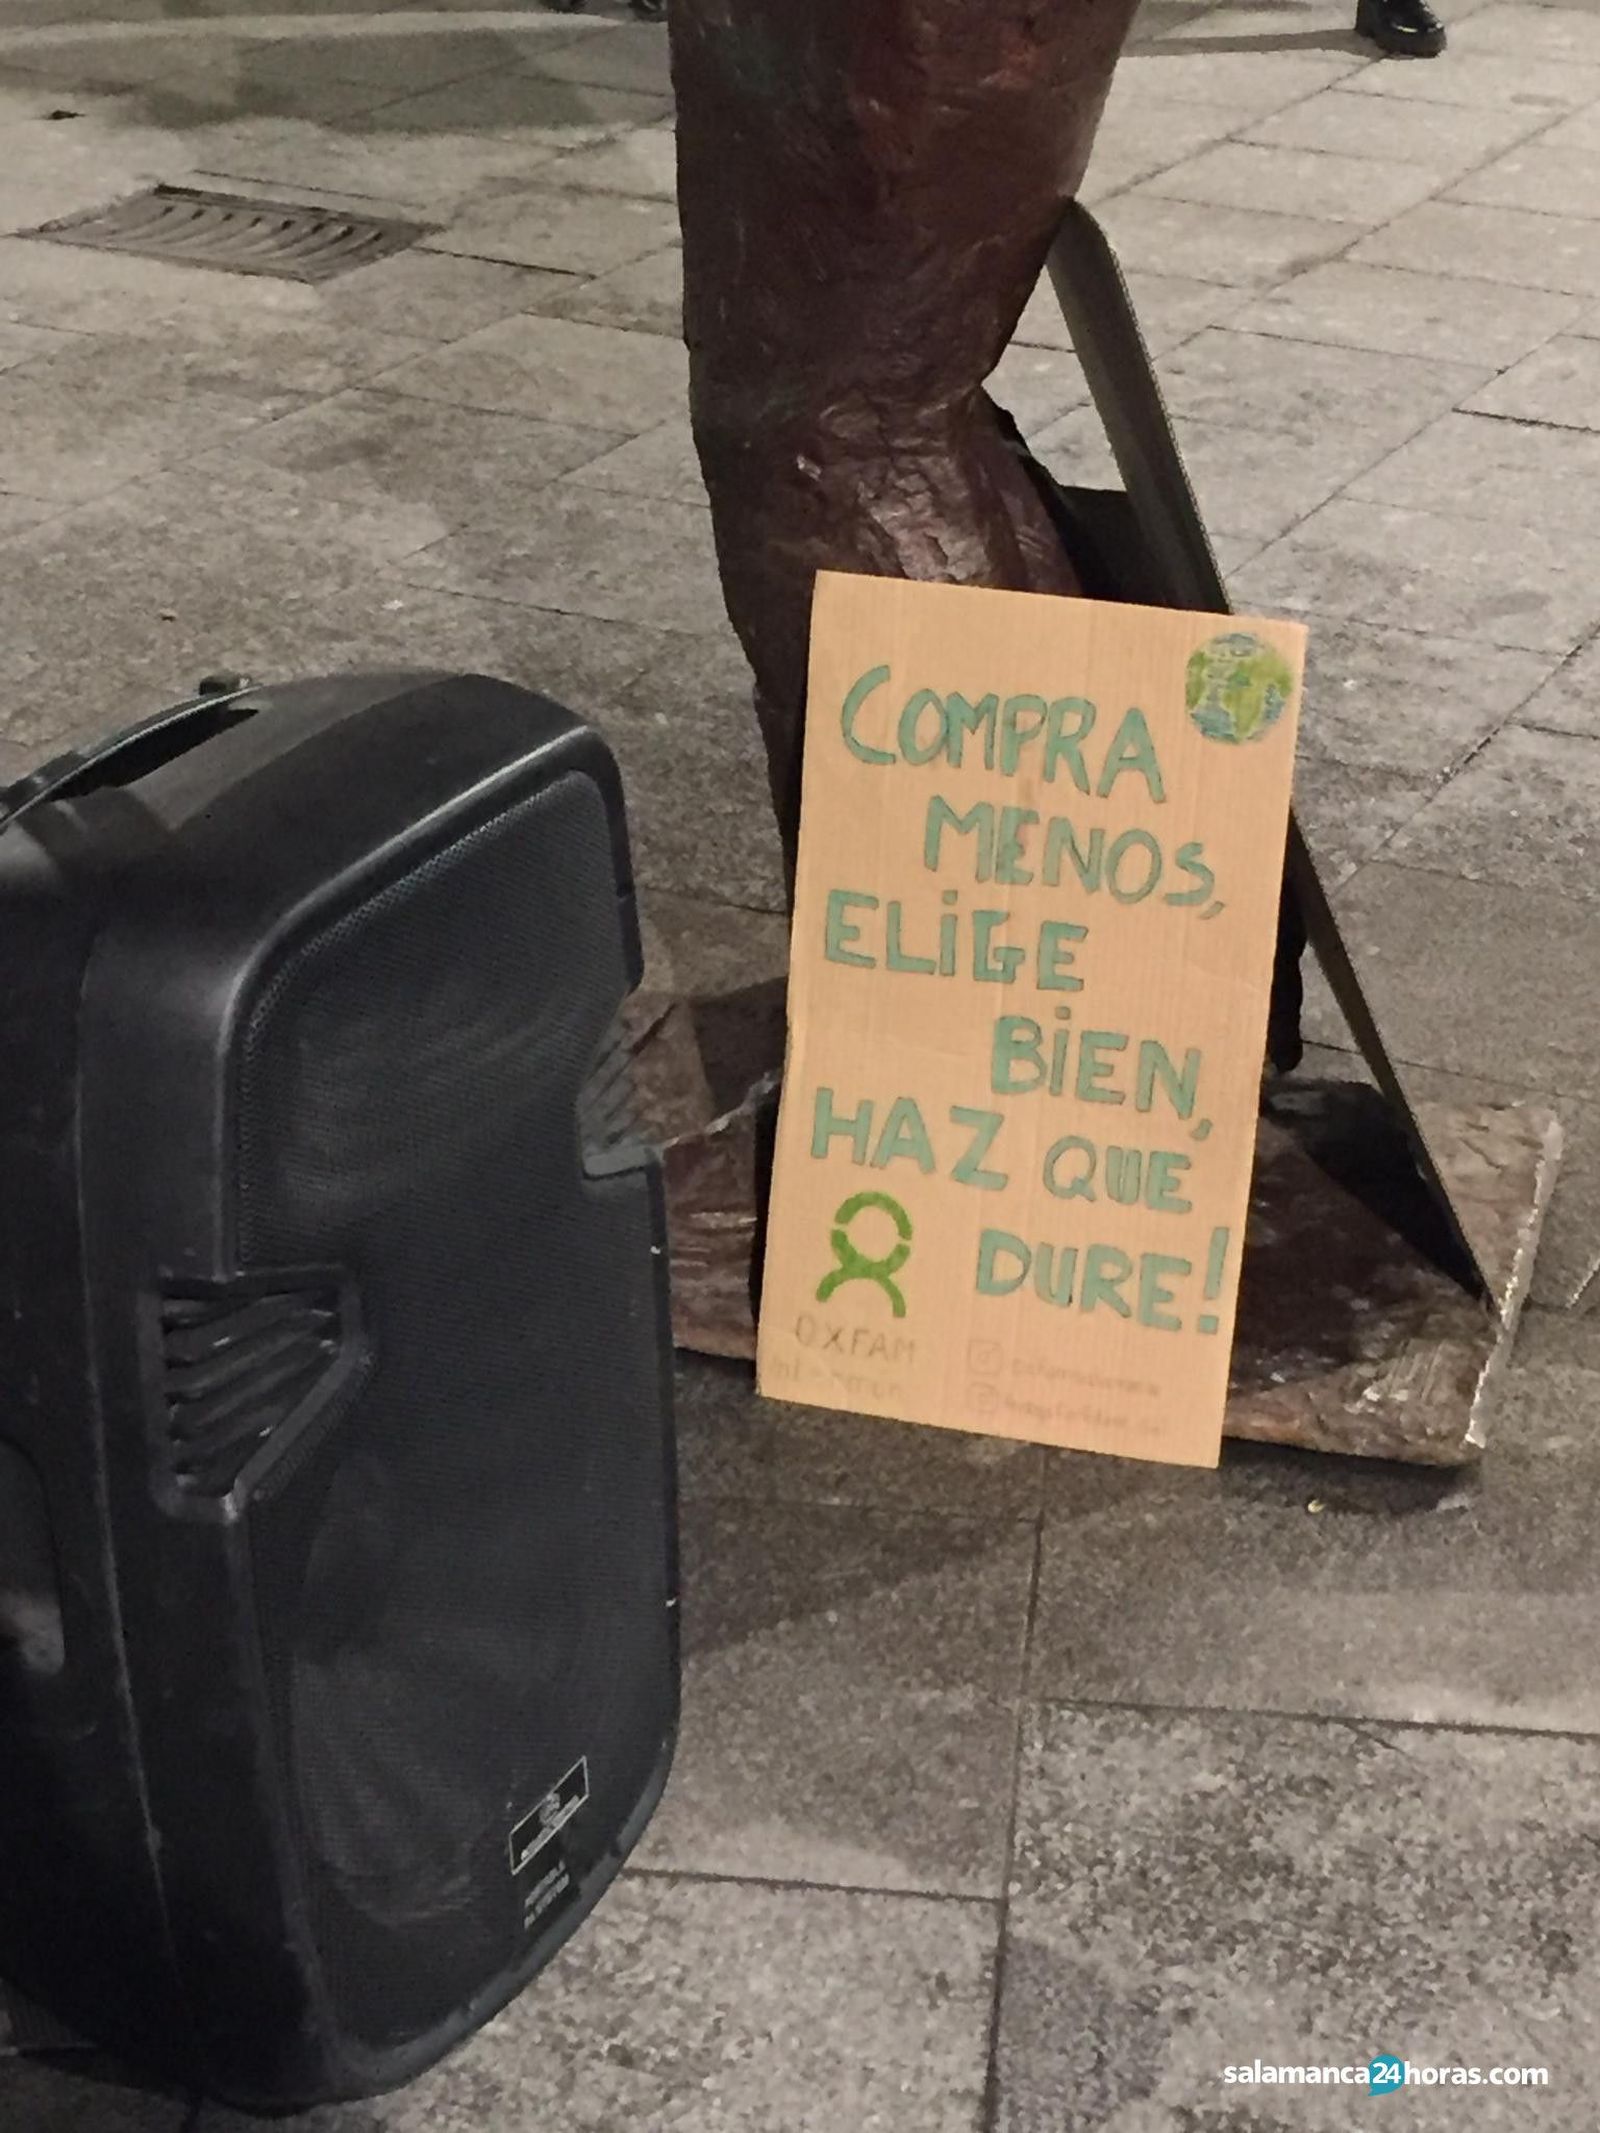 COMPRA
MENOS,
ELIGE
BIEN,
HAZ QUE
DURE!
OXFAM
Intermón
salamanca24horas.com